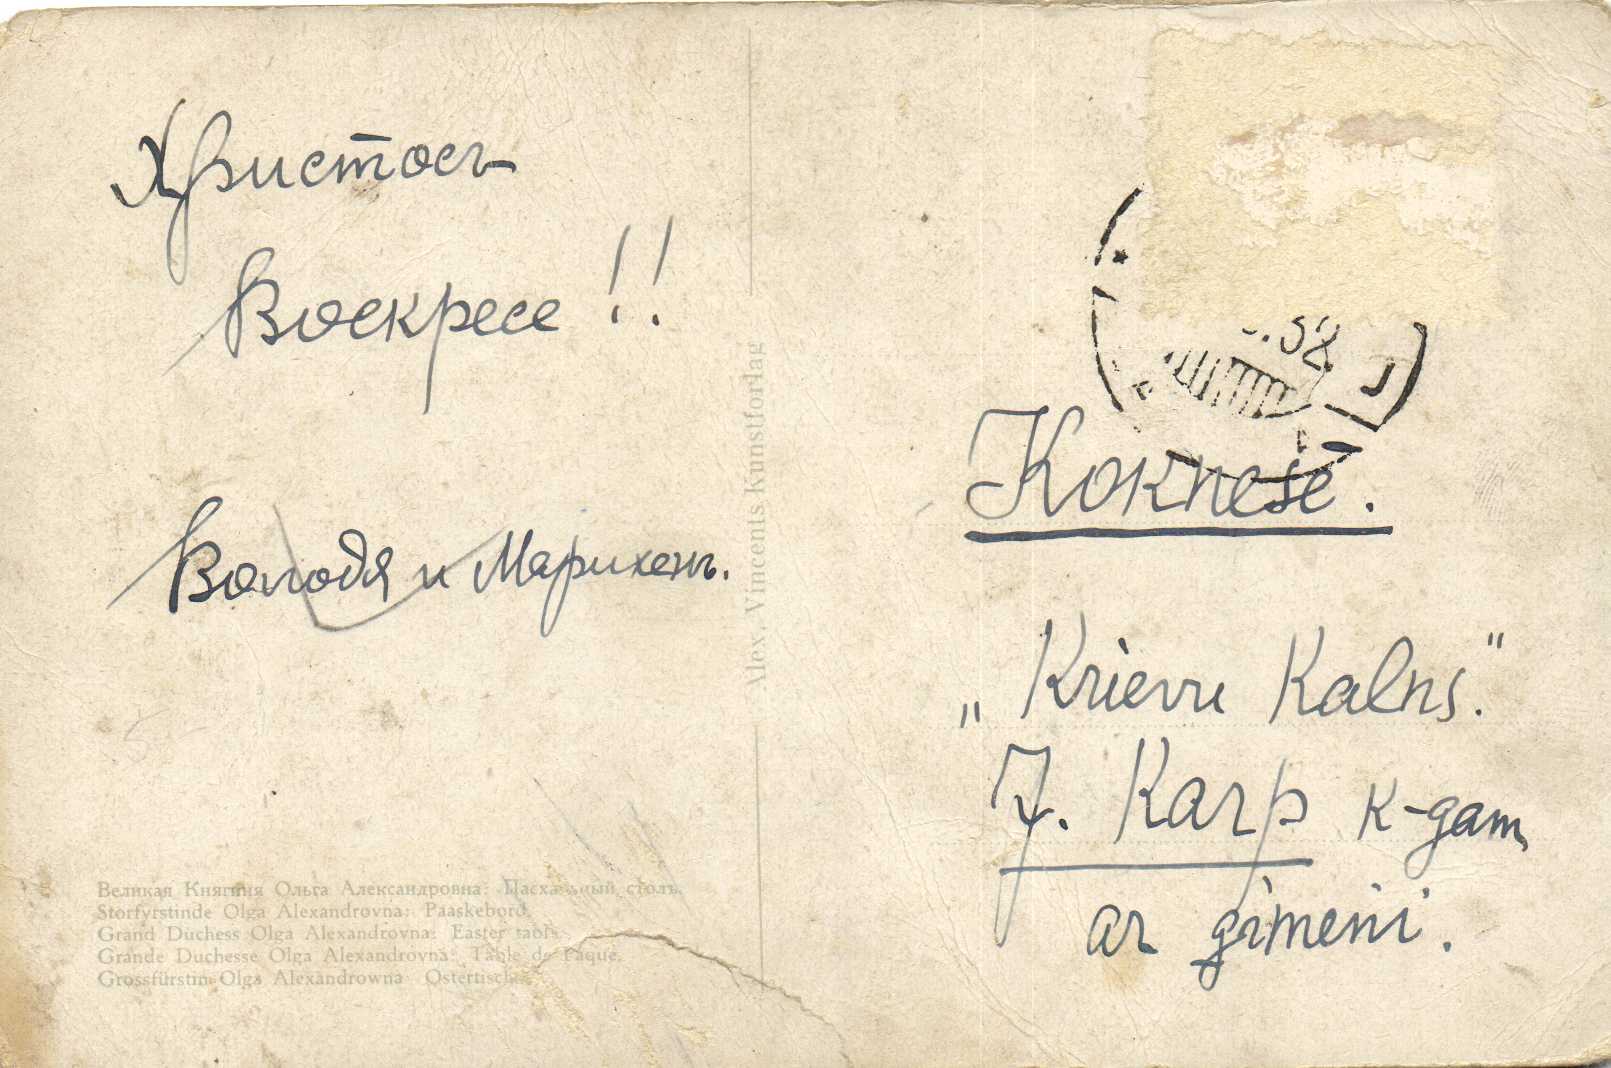 Христосъ
Воскресе!!
Володя и Марихенъ.
Великая Княгиня Ольга Александровна: Пасхальный столъ.
Storfyrstinde Olga Alexandrovna: Paaskebord.
Grand Duchess Olga Alexandrovna: Easter table.
Grande Duchesse Olga Alexandrovna: Table de Pâque.
Grossfürstin Olga Alexandrowna Ostertisch.
Alex. Vincents kunstforlag
.32
Koknesē.
„Krievu Kalns."
J. Karp k-gam
ar ģimeni.